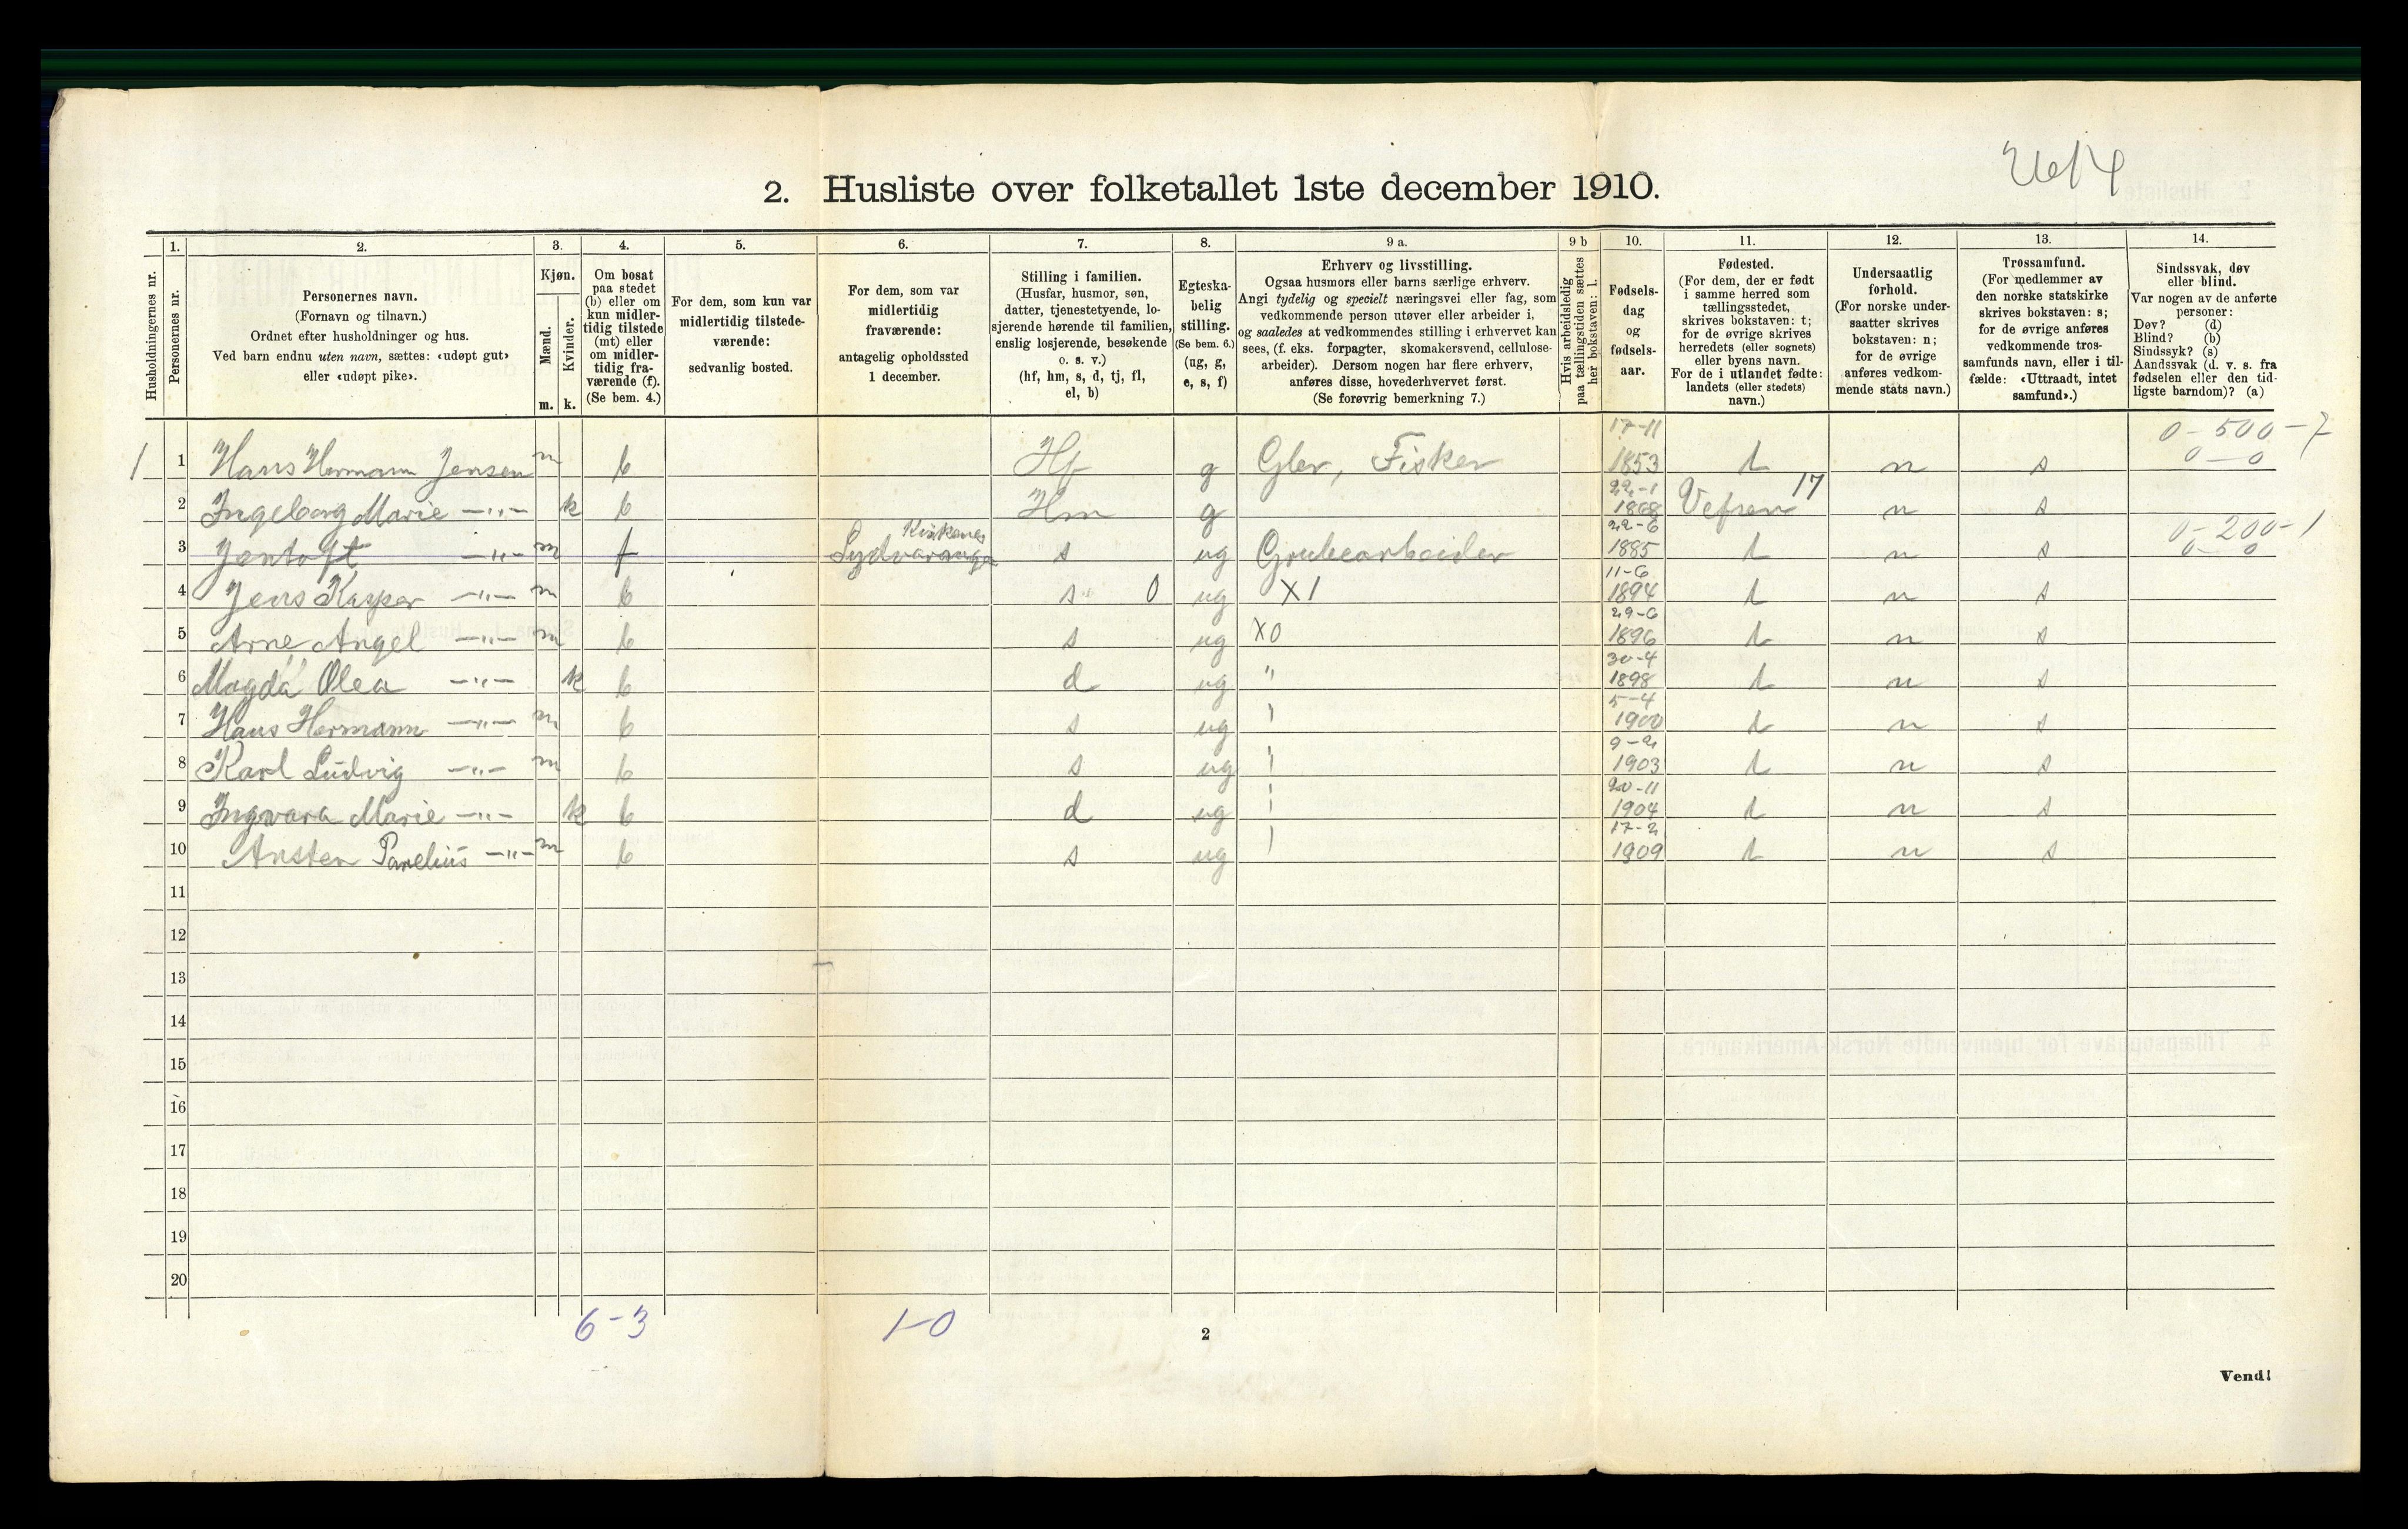 2. Husliste over folketallet 1ste december 1910.
Husholdningernes nr.
1.
Personernes nr.
2.
Personernes navn.
(Fornavn og tilnavn.)
Ordnet efter husholdninger og hus.
Ved barn endnu uten navn, sættes: «udøpt gut»
eller «udøpt pike».
3.
Kjøn.
Mænd.
Kvinder.
m. k.
4.
Om bosat
paa stedet
(b) eller om
kun midler-
tidig tilstede
(mt) eller
om midler-
tidig fra-
værende (f).
(Se bem. 4.)
5.
For dem, som kun var
midlertidig tilstede-
værende:
sedvanlig bosted.
6.
For dem, som var
midlertidig
fraværende:
antagelig opholdssted
1 december.
7.
Stilling i familien.
(Husfar, husmor, søn,
datter, tjenestetyende, lo-
sjerende hørende til familien,
enslig losjerende, besøkende
o. s. v.)
(hf, hm, s, d, tj, fl,
el, b)
8.
Egteska-
belig
stilling.
(Se bem. 6.)
(ug, g,
e, s, f)
9 a.
Erhverv og livsstilling.
Ogsaa husmors eller barns særlige erhverv.
Angi tydelig og specielt næringsvei eller fag, som
vedkommende person utøver eller arbeider i,
og saaledes at vedkommendes stilling i erhvervet kan
sees, (f. eks. forpagter, skomakersvend, cellulose-
arbeider). Dersom nogen har flere erhverv,
anføres disse, hovederhvervet først.
(Se forøvrig bemerkning 7.)
9 b
Hvis arbeidsledig
paa tællingstiden sættes
her bokstaven: l.
10.
Fødsels-
dag
og
fødsels-
aar.
11.
Fødested.
(For dem, der er født
i samme herred som
tællingsstedet,
skrives bokstaven: t;
for de øvrige skrives
herredets (eller sognets)
eller byens navn.
For de i utlandet fødte:
landets (eller stedets)
navn.)
12.
Undersaatlig
forhold.
(For norske under-
saatter skrives
bokstaven: n;
for de øvrige
anføres vedkom-
mende stats navn.)
13.
Trossamfund.
(For medlemmer av
den norske statskirke
skrives bokstaven: s;
for de øvrige anføres
vedkommende tros-
samfunds navn, eller i til-
fælde: «Uttraadt, intet
samfund».)
14.
Sindssvak, døv
eller blind.
Var nogen av de anførte
personer:
Døv? (d)
Blind? (b)
Sindssyk? (s)
Aandssvak (d. v. s. fra
fødselen eller den tid-
ligste barndom)? (a)
1 1 Hans Hermann Jensen m b Hf g Gbr, Fisker 17-11 1853 t n s 0-500-7 0-0
2 Ingeborg Marie -"- k b Hm g 22-1 1868 Vefsen 17 n s
3 Jentoft -"- m f Kirkenes Sydvaranger s ug Grubearbeider 22-6 1885 t n s 0-200-1 0-0
4 Jens Kasper -"- m b s 0 ug X1 11-6 1894 t n s
5 Arne Angel -"- m b s ug X0 29-6 1896 t n s
6 Magda Olea -"- k b d ug " 30-4 1898 t n s
7 Hans Hermann -"- m b s ug ' 5-4 1900 t n s
8 Karl Ludvig -"- m b s ug ' 9-2 1903 t n s
9 Ingvara Marie -"- k b d ug ' 20-11 1904 t n s
10 Ansten Parelius -"- m b s ug ' 17-2 1909 t n s
11
12
13
14
15
16
17
18
19
20
6-3 1-0
2
Vend!